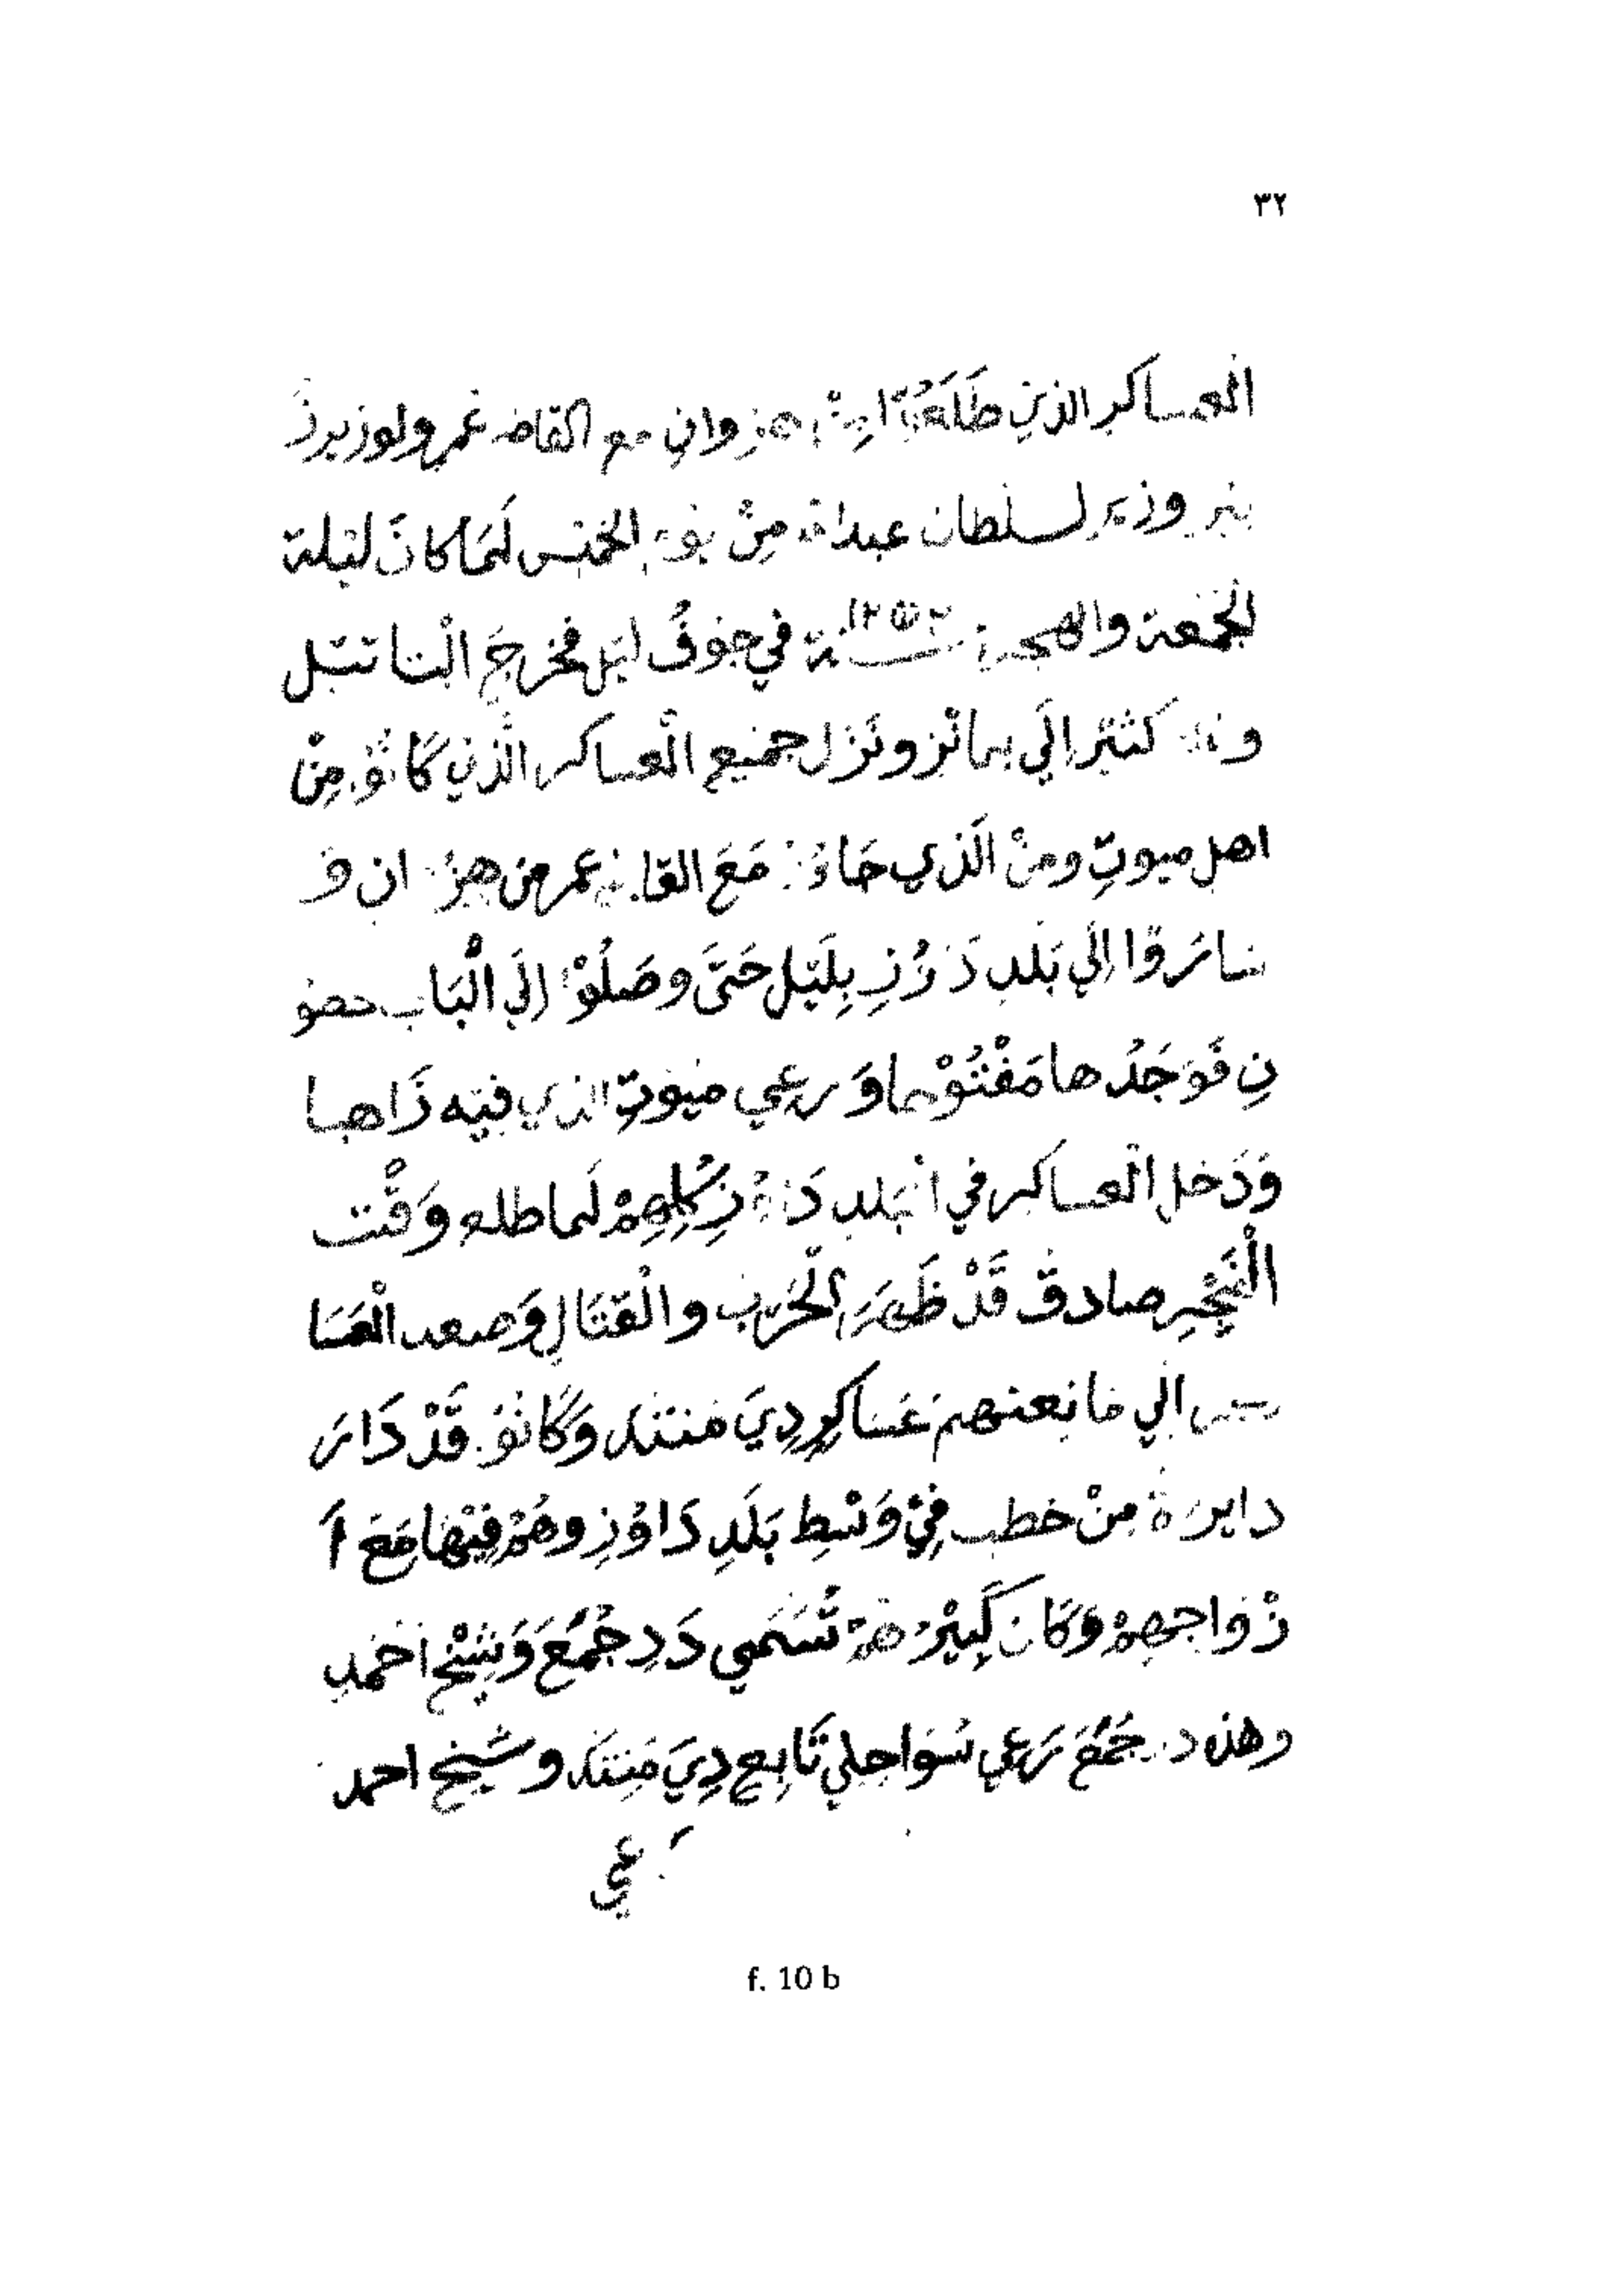 ٣٢
العساكر الذين طَلَعُوا مِنْ هنزوان مع القاضه عمر ولوزيرد
وزير لسلطان عبدالله مِنْ يوم الخمنس لَمَا كانَ لَيْلة
الجُمعة والهجرة سنة ١٢٥٢ في جَوْفُ لَيْل فخرجَ الْنا تَبْل
كثيْر إلَي بمائز ونَزَل جميع الْعساكر الَّذِي كَانُوْ مِنْ
اهل ميوتِ ومنْ الَّذي جَاءُوْ مَعَ القاضِ عمر مِن هنزوان وَ
سَارُوا اِلَي بَلَدِ دَوُزِ بِلَيْل حَتَّى وصَلُوْا إلَي الْبَاب حصو
نِ فَوَجَدُها مَفْتُوْحا وَ رعي ميوتِ الذي فيْه ذَاهبا
وَدَخل الْعساكر في الْبَلد دَوُزِ كُلِهِمْ لَما طلع وَقْت
الْفَجْرِ صادق قَدْ ظَهَرَ الْحَرب والْقتَالِ وَصعد الْعَسَا
الَي مانعنهم عَسَاكِرِ دِيَ مَنتَكَ وَكَانُوْ قَدْ دَارَ
دايرة مِنْ خطب فِيْ وَسْطِ بَلَدِ دَاوُزِ وهُمْ فِيْهَا مَعَ اَ
زْواجهِمْ وَكَان كَبِيْرُهمْ تُسَمَي دَدِ جُمُعَ وَشَيْخ احمد
وهذ دد جُمُعَ رَعي سَواحِلي تَابِع دِيَ مَنتَكَ وشَيخ احمد
رَعي
f. 10 b